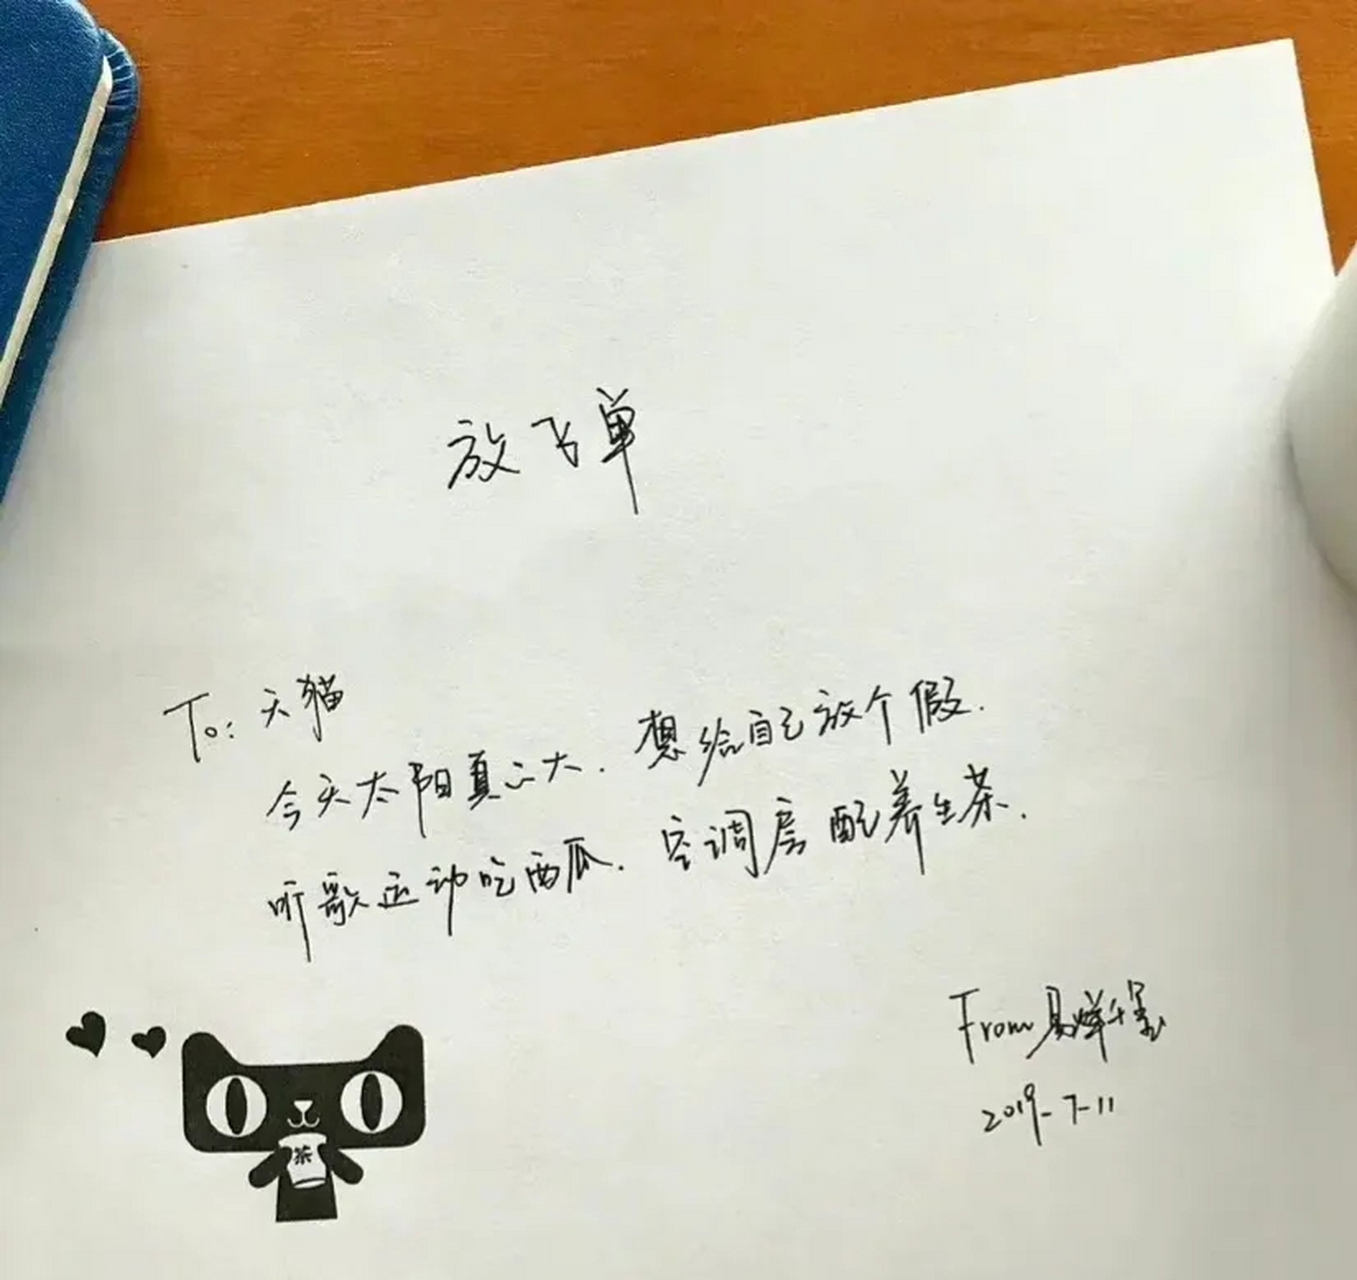 放飞单
To: 天猫
今天太阳真正大. 想给自己放个假.
听歌运动吃西瓜. 空调房配养生茶.
From 易烊千玺
2019-7-11
茶